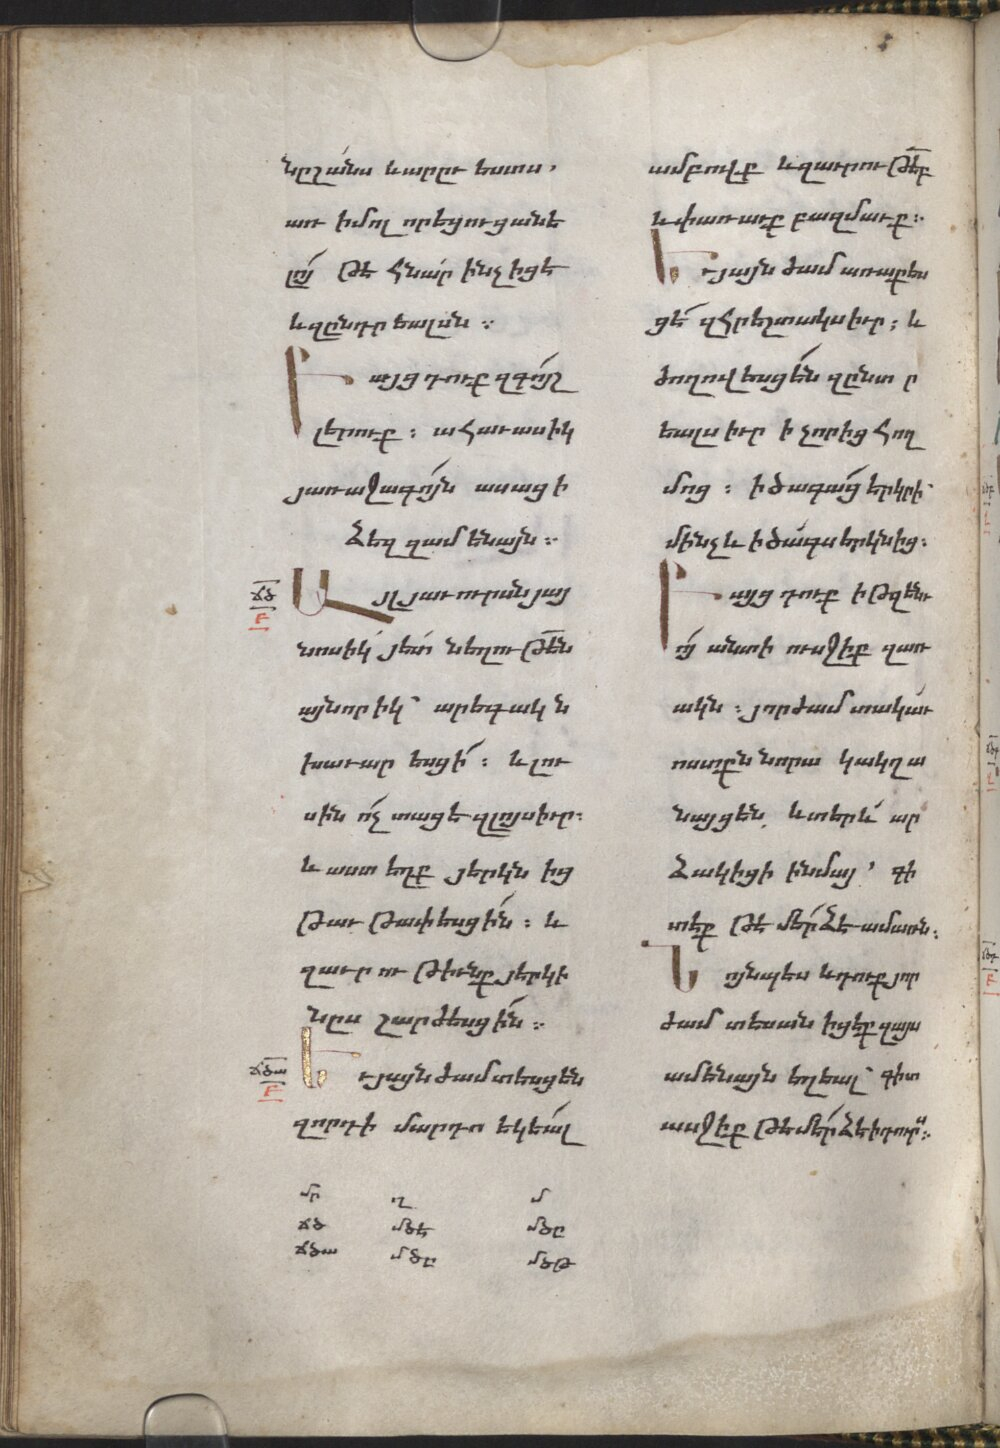 նըշանս և արըւեստս՝
առ ի մոլորեցուցանե
լոյ թե հնար ինչ իցէ
և զընտրեալսն ։
Բայց դուք զգոյշ
լերուք ։ ահաւասիկ
յառաջագոյն ասացի
ձեզ զամենայն ։
ճծ
Բ
Այլ յաւուրսն յայ
նոսիկ յետ նեղութեն
այնորիկ՝ արեգակն
խաւարեսցի ։ և լու
սին ոչ տացե զլոյս իւր։
և աստեղք յերկնից
թաւթափեսցին ։ և
զաւրութիւնք յերկի
նըս շարժեսցին ։
ճծա
Բ
Եւ յայնժամ տեսցեն
զորդի մարդո եկեալ
ամբովք և զաւրութեբ
և փառաւք բազմաւք։
Եւ յայնժամ առաքես
ցէ զհրեշտակս իւր ; և
ժողովեսցեն զընտր
եալս իւր ի չորից հող
մոց ։ ի ծագաց երկրի՝
մինչև ի ծագս երկնից։
Բայց դուք ի թզենւ
ոյ անտի ուսջիք զառ
ակն ։ յորժամ տակաւ
ոստքն նորա կակղա
նայցեն, և տերև ար
ձակիցի ինմայ՝ գի
տեք թե մերձ է ամառն։
Նոյնպես և դուք յոր
ժամ տեսանիցեք զայս
ամենայն եղեալ՝ գիտ
ասջիք թե մերձ է ի դուրս։
մր ղ մ
ճծ մծե մծը
ճծա մծը մծթ